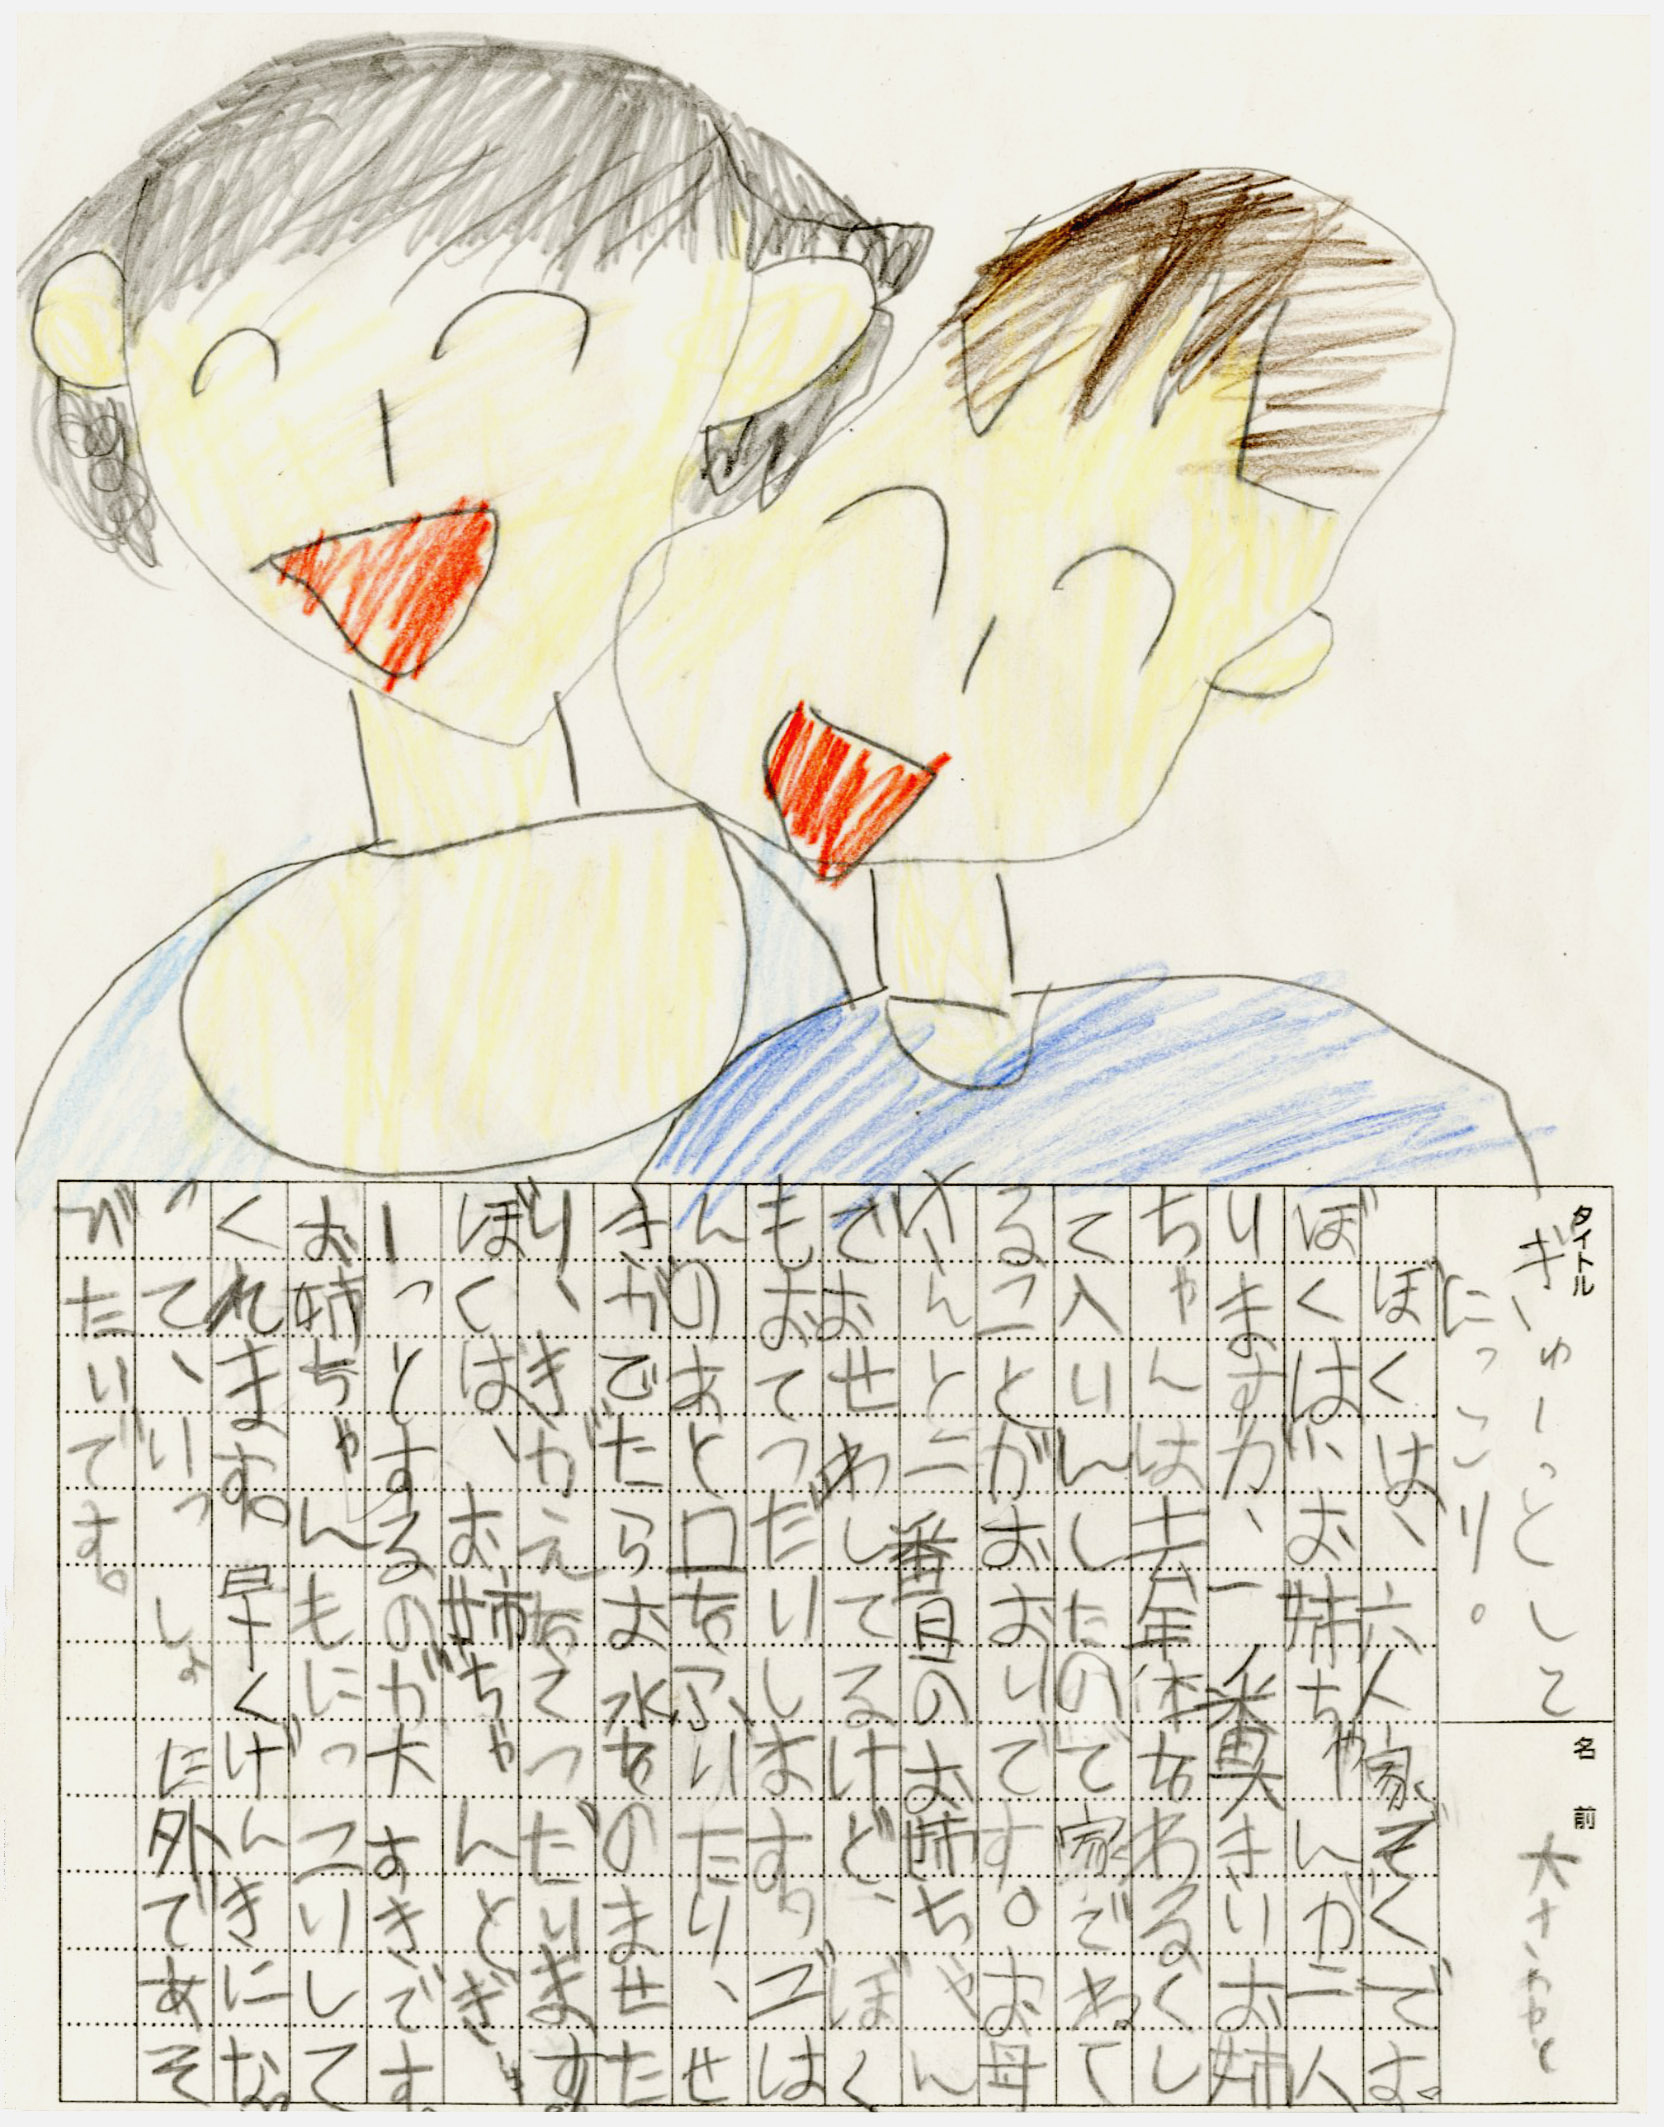 タイトル
ぎゅーっとして
にっこり。
名前
ぼくは、六人家ぞくです。
ぼくは、お姉ちゃんが二人
りますが、一番奥きいお姉
ちゃんは去年体をわるくし
て入いんしたので家でねて
ることがおおいです。お母
さんと二番目のお姉ちゃん
でおせわしてるけど、ぼく
もおてつだいします。ごは
んのあと口をふいたり、せ
きがでたらお水をのませた
り、きがえをてつだいます。
ぼくは、お姉ちゃんとぎゅ
ーっとするのが大すきです。
お姉ちゃんもにっこりして
くれます。早くげんきにな
って、いっしょに外であそ
びたいです。